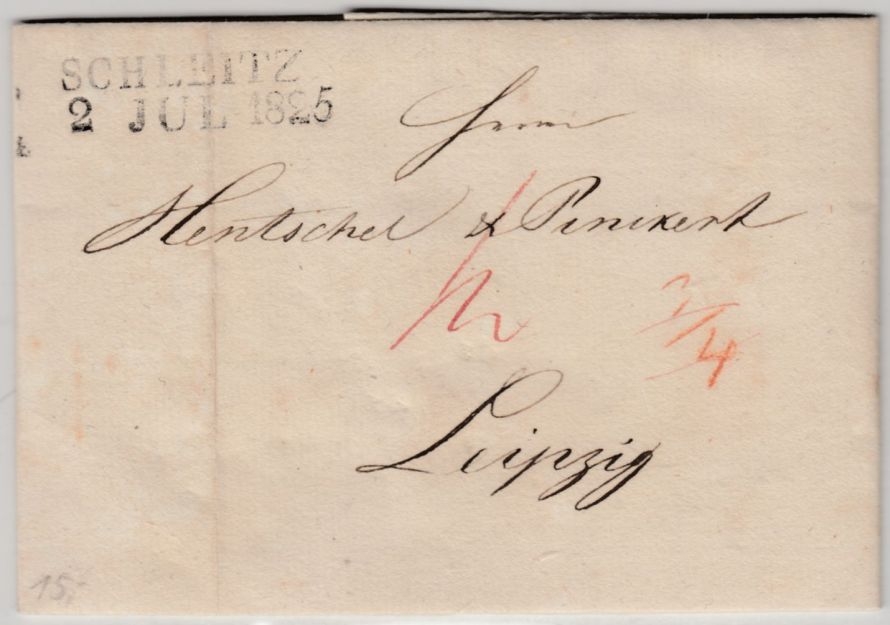 SCHLEITZ
2 JUL 1825
Herrn
Hentschel & Pinckert
3/4
Leipzig
15,-